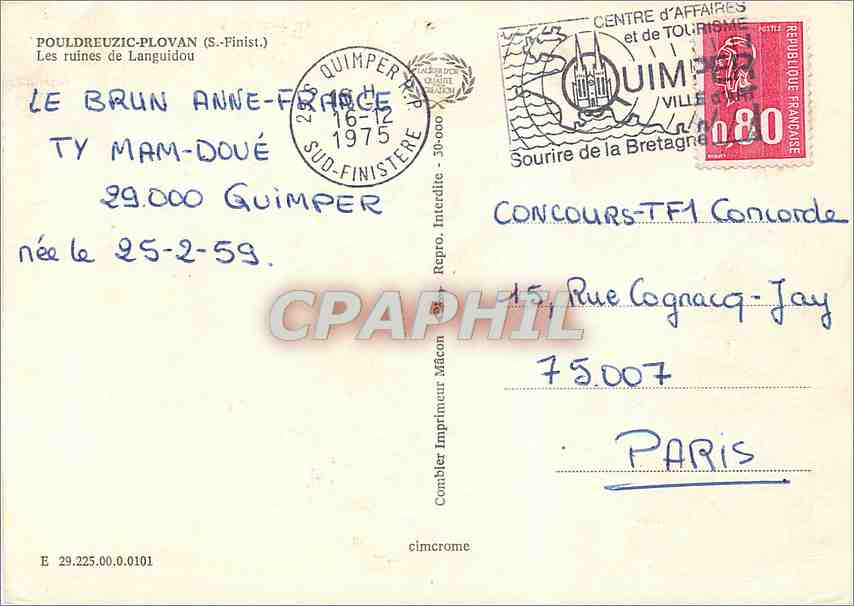 POULDREUZIC-PLOVAN (S.-Finist.)
Les ruines de Languidou
LE BRUN ANNE-FRANCE
TY MAM-DOUÉ
29.000 QUIMPER
née le 25-2-59.
QUIMPER R.P.
16 H
16-12
1975
SUD-FINISTERE
LAURIER D'OR
DE LA
QUALITÉ
CRÉATION
CENTRE d'AFFAIRES
et de TOURISME
QUIMPER
VILLE d'ART
Sourire de la Bretagne
POSTES
REPUBLIQUE FRANÇAISE
0,80
Combier Imprimeur Mâcon
Repro. Interdite - 30-000
CONCOURS-TF1 Concorde
15, Rue Cognacq-Jay
75.007
PARIS
CPAPHIL
cimcrome
E 29.225.00.0.0101